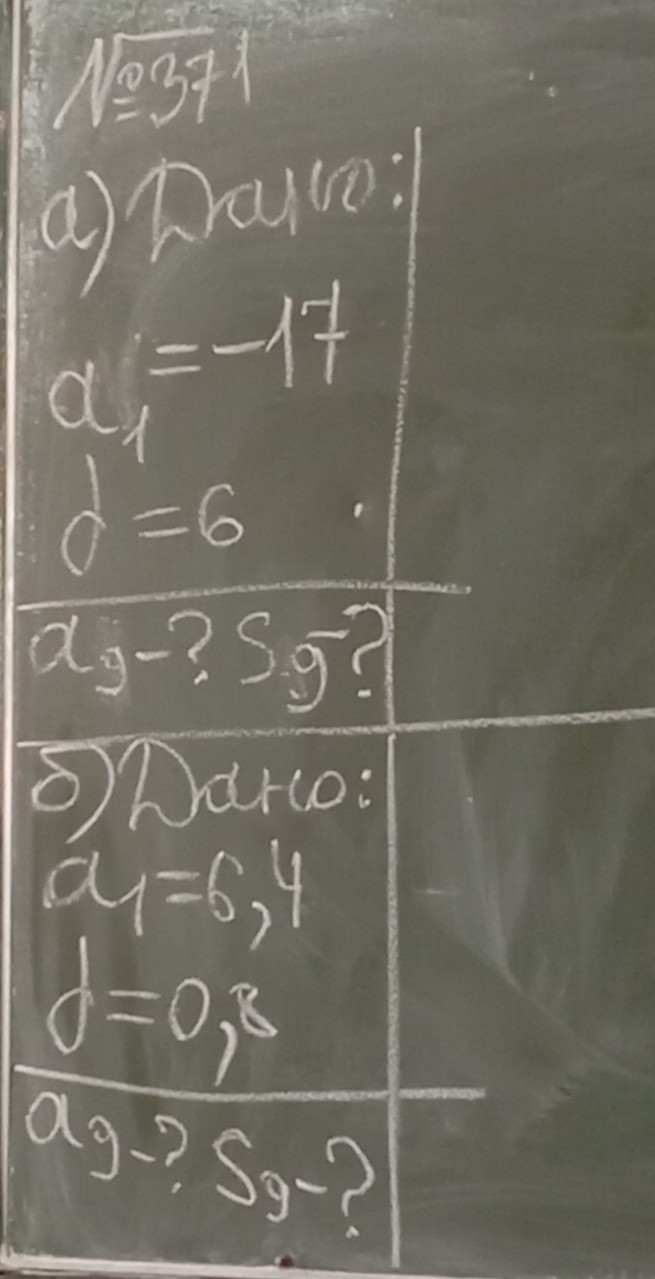 №371
а) Дано:
a₁ = -17
d = 6
a₉-? S₉-?
б) Дано:
a₁=6,4
d=0,8
a₉-? S₉-?